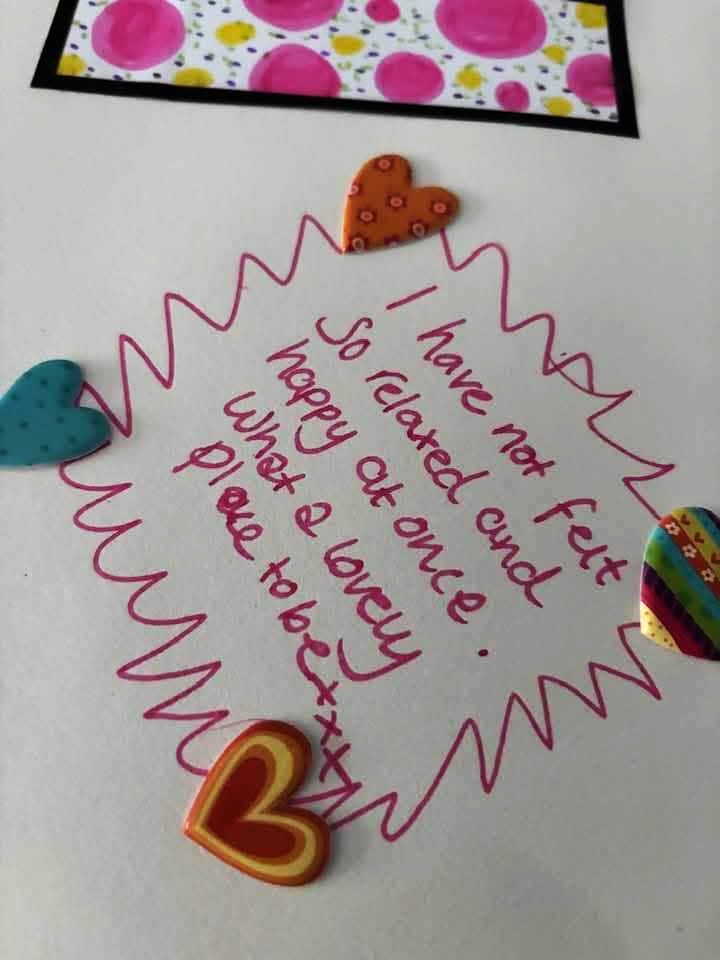 I have not felt
So relaxed and
happy at once.
What a lovely
place to be xxx